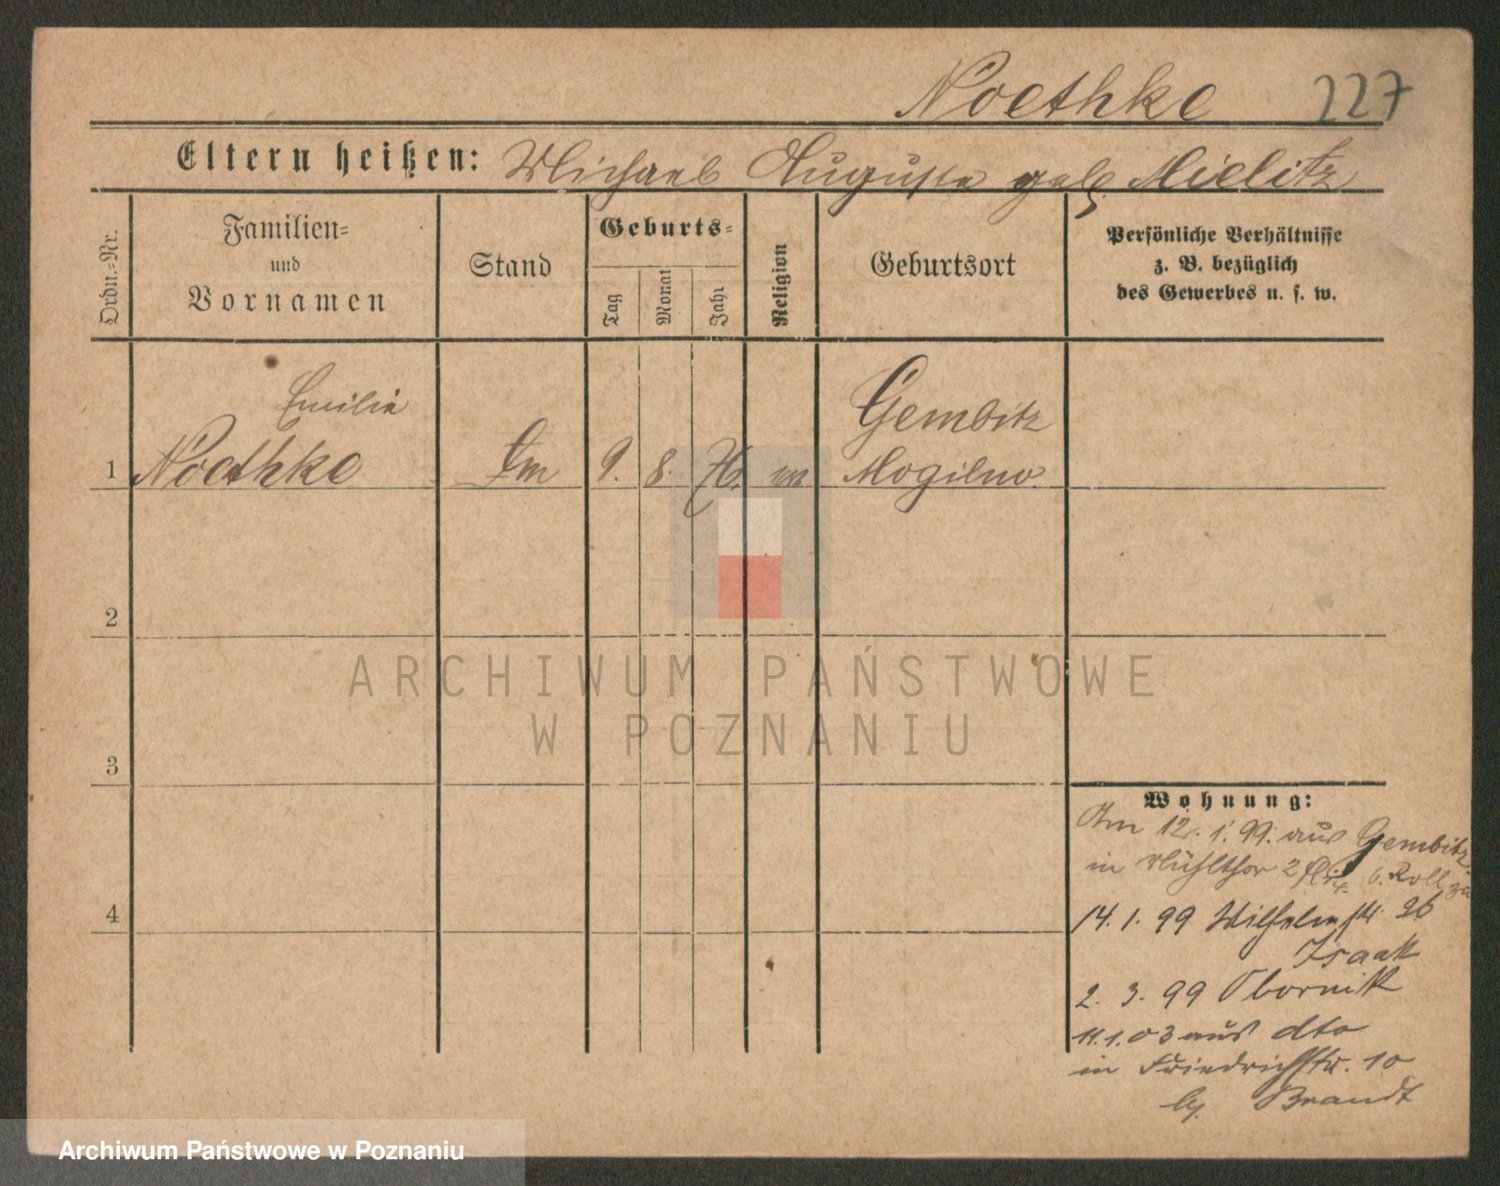 Noethke 227
Eltern heißen: Michael Auguste geb. Mielitz
Ordn.-Nr.
Familien-
und
Vornamen
Stand
Geburts-
Tag
Monat
Jahr
Religion
Geburtsort
Persönliche Verhältnisse
z. B. bezüglich
des Gewerbes u. s. w.
Emilie
Gembitz
1 Noethke 9. 8. 76. Mogilno
2
3
4
Wohnung:
Am 12. 1. 99. aus Gembitz
in Mühlthor 2 b. Roll zu
14. 1. 99 Wilhelmstr. 26
Isaak
2. 3. 99 Obornik
11.1.03 aus dto
in Friedrichstr. 10
bei Brandt
ARCHIWUM PAŃSTWOWE
W POZNANIU
Archiwum Państwowe w Poznaniu